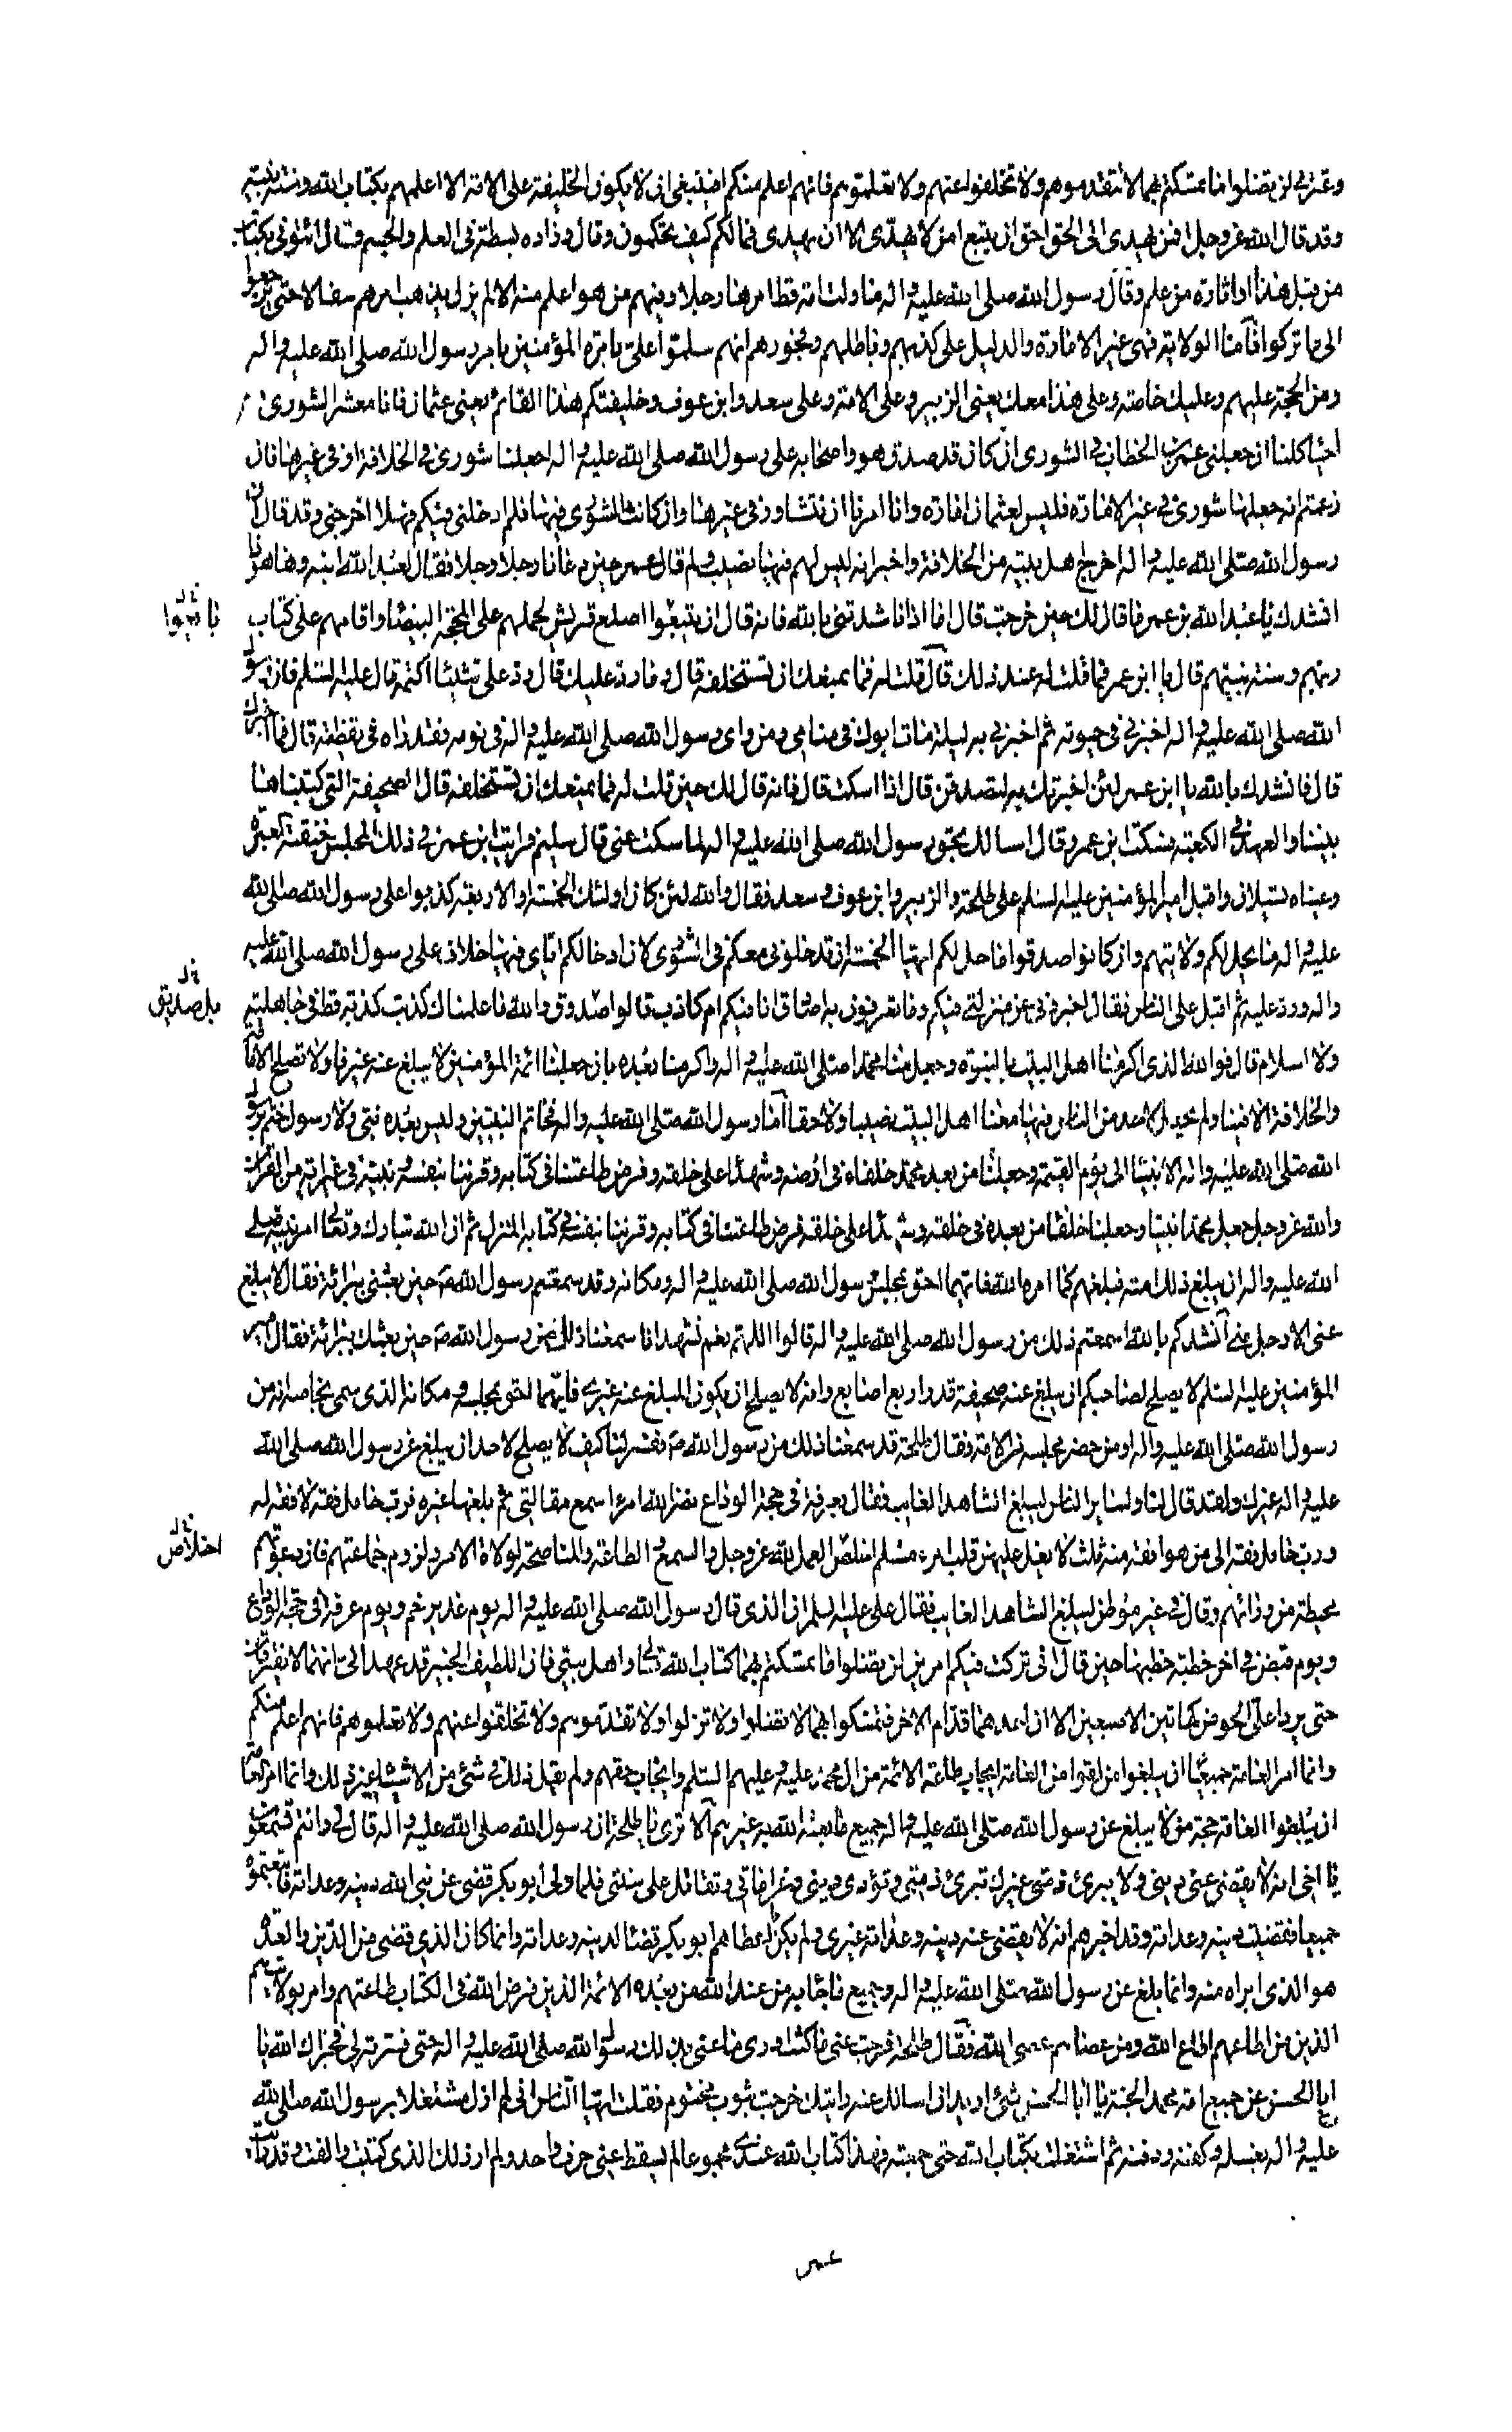 وعترتي لن تضلوا ما تمسكتم بهما لا تتقدموهم ولا تخلفوا عنهم ولا تعلموهم فانهم اعلم منكم افينبغي ان لا يكون الخليفة على الامة الا اعلمهم بكتاب الله وسنة نبيه
وقد قال الله عز وجل افمن يهدي الى الحق احق ان يتبع امن لا يهدي الا ان يهدى فما لكم كيف تحكمون وقال وزاده بسطة في العلم والجسم وقال ائتوني بكتاب
من قبل هذا او اثارة من علم وقال رسول الله صلى الله عليه واله ما ولت امة قط امرها رجلا وفيهم من هو اعلم منه الا لم يزل يذهب امرهم سفالا حتى يرجعوا
الى ما تركوا فاما الولاية فهي غير الامارة والدليل على كذبهم وباطلهم وفجورهم انهم سلموا علي بامرة المؤمنين بامر رسول الله صلى الله عليه واله
ومن الحجة عليهم وعليك خاصة وعلى هذا معك يعني الزبير وعلى الامة وعلى سعد وابن عوف وخليفتكم هذا القائم يعني عثمان فانا معشر الشورى
احياء كلنا ان جعلني عمر بن الخطاب في الشورى ان كان قد صدق هو واصحابه على رسول الله صلى الله عليه واله اجعلنا شورى في الخلافة او في غيرها فان
زعمتم انه جعلها شورى في غير الامارة فليس لعثمان امارة وانا امرنا ان نتشاور في غيرها وان كانت الشورى فيها فلم ادخلني فيكم فهلا اخرجني وقد قال ان
رسول الله صلى الله عليه واله اخرج اهل بيته من الخلافة واخبر انه ليس لهم فيها نصيب ولم قال عمر حين دعانا رجلا رجلا فقال لعبد الله ابنه وها هو ذا
انشدك يا عبد الله بن عمر ما قال لك حين خرجت قال اما اذا ناشدتني بالله فانه قال ان يتبعوا اصلع قريش لحملهم على المحجة البيضاء واقامهم على كتاب
ربهم وسنة نبيهم قال يا ابن عمر فما قلت له عند ذلك قال قلت له فما يمنعك ان تستخلفه قال وما رد عليك قال رد علي شيئا اكتمه قال عليه السلم فان رسول
الله صلى الله عليه واله اخبرني في حيوته ثم اخبرني به ليلة مات ابوك في منامي ومن راى رسول الله صلى الله عليه واله في نومه فقد راه في يقظته قال فما اخبرك
قال فانشدك بالله يا ابن عمر لئن اخبرتك به لتصدقن قال اذا اسكت قال فانه قال لك حين قلت له فما يمنعك ان تستخلفه قال الصحيفة التي كتبناها
بيننا والعهد في الكعبة فسكت ابن عمر وقال اسالك بحق رسول الله صلى الله عليه واله لما سكت عني قال سليم فرايت ابن عمر في ذلك المجلس خنقته العبرة
وعيناه تسيلان واقبل امير المؤمنين عليه السلم على طلحة والزبير وابن عوف وسعد فقال والله لئن كان اولئك الخمسة او الاربعة كذبوا على رسول الله صلى الله
عليه واله ما يحل لكم ولايتهم وان كانوا صدقوا ما حل لكم ايها الخمسة ان تدخلوني معكم في الشورى لان ادخالكم اياي فيها خلاف على رسول الله صلى الله عليه
واله ورد عليه ثم اقبل على الناس فقال اخبروني عن منزلتي فيكم وما تعرفوني به اصادق انا فيكم ام كاذب قالوا صدوق والله ما علمناك كذبت كذبة قط في جاهلية
ولا اسلام قال فوالله الذي اكرمنا اهل البيت بالنبوة وجعل منا محمدا صلى الله عليه واله واكرمنا بعده بان جعلنا ائمة المؤمنين لا يبلغ عنه غيرنا ولا تصلح الامامة
والخلافة الا فينا ولم يجعل لاحد من الناس فيها معنا اهل البيت نصيبا ولا حقا اما رسول الله صلى الله عليه واله فخاتم النبيين وليس بعده نبي ولا رسول ختم برسول
الله صلى الله عليه واله الانبياء الى يوم القيمة وجعلنا من بعد محمد خلفاء في ارضه وشهداء على خلقه وفرض طاعتنا في كتابه وقرننا بنفسه ونبيه في غير اية من القران
والله عز وجل جعل محمدا نبيا وجعلنا خلفاء من بعده في خلقه وشهداء على خلقه وفرض طاعتنا في كتابه وقرننا بنفسه في كتابه المنزل ثم ان الله تبارك وتعالى امر نبيه صلى
الله عليه واله ان يبلغ ذلك امته فبلغهم كما امره الله فايهما احق بمجلس رسول الله صلى الله عليه واله ومكانه وقد سمعتم رسول الله ص حين بعثني ببراءة فقال لا يبلغ
عني الا رجل مني انشدكم بالله اسمعتم ذلك من رسول الله صلى الله عليه واله قالوا اللهم نعم نشهد انا سمعنا ذلك من رسول الله ص حين بعثك ببراءة فقال امير
المؤمنين عليه السلم لا يصلح لصاحبكم ان يبلغ عنه صحيفة قدر اربع اصابع وانه لا يصلح ان يكون المبلغ عنه غيري فايهما احق بمجلسه ومكانه الذي سمى بخاصته من
رسول الله صلى الله عليه واله او من حضر مجلسه من الامة فقال طلحة قد سمعنا ذلك من رسول الله ص ففسر لنا كيف لا يصلح لاحد ان يبلغ عن رسول الله صلى الله
عليه واله غيرك ولقد قال لنا ولساير الناس ليبلغ الشاهد الغايب فقال بعرفة في حجة الوداع نضر الله امرءا سمع مقالتي ثم بلغها غيره فرب حامل فقه لا فقه له
ورب حامل فقه الى من هو افقه منه ثلث لا يغل عليهن قلب امرء مسلم اخلص العمل لله عز وجل والسمع والطاعة والمناصحة لولاة الامر ولزوم جماعتهم فان دعوتهم
محيطة من ورائهم وقال في غير موطن ليبلغ الشاهد الغايب فقال علي عليه السلم ان الذي قال رسول الله صلى الله عليه واله يوم غدير خم ويوم عرفة في حجة الوداع
ويوم قبض في اخر خطبة خطبها حين قال اني تركت فيكم امرين لن تضلوا ما تمسكتم بهما كتاب الله تعالى واهل بيتي فان اللطيف الخبير قد عهد الي انهما لا يفترقان
حتى يردا علي الحوض كهاتين الاصبعين الا ان احدهما قدام الاخر فتمسكوا بهما لا تضلوا ولا تزلوا ولا تقدموهم ولا تخلفوا عنهم ولا تعلموهم فانهم اعلم منكم
وانما امر العامة جميعا ان يبلغوا من لقوا من العامة ايجاب طاعة الائمة من ال محمد عليه وعليهم السلم وايجاب حقهم ولم يقل ذلك في شئ من الاشياء غير ذلك وانما امر العامة
ان يبلغوا العامة حجة من لا يبلغ عن رسول الله صلى الله عليه واله جميع ما بعثه الله به غيرهم الا ترى يا طلحة ان رسول الله صلى الله عليه واله قال لي وانتم تسمعون
يا اخي انه لا يقضي عني ديني ولا يبرئ ذمتي غيرك تبرئ ذمتي وتؤدي ديني وغراماتي وتقاتل على سنتي فلما ولي ابو بكر قضى عن نبي الله دينه وعداته فاتبعتموه
جميعا فقضيت دينه وعداته وقد اخبرهم انه لا يقضي عنه دينه وعداته غيري ولم يكن ما اعطاهم ابو بكر قضاء لدينه وعداته وانما كان الذي قضى من الدين والعدة
هو الذي ابراه منه وانما بلغ عن رسول الله صلى الله عليه واله جميع ما جاء به من عند الله من بعده الائمة الذين فرض الله في الكتاب طاعتهم وامر بولايتهم
الذين من اطاعهم اطاع الله ومن عصاهم عصى الله فقال طلحة فرجت عني ما كنت ادري ما عنى بذلك رسول الله صلى الله عليه واله حتى فسرته لي فجزاك الله يا
ابا الحسن عن جميع امة محمد الجنة يا ابا الحسن شئ اريد ان اسالك عنه رايتك خرجت بثوب مختوم فقلت ايها الناس اني لم ازل مشتغلا برسول الله صلى الله
عليه واله بغسله وكفنه ودفنه ثم اشتغلت بكتاب الله حتى جمعته فهذا كتاب الله عندي مجموعا لم يسقط عني حرف واحد ولم ار ذلك الذي كتبت والفت وقد رايت